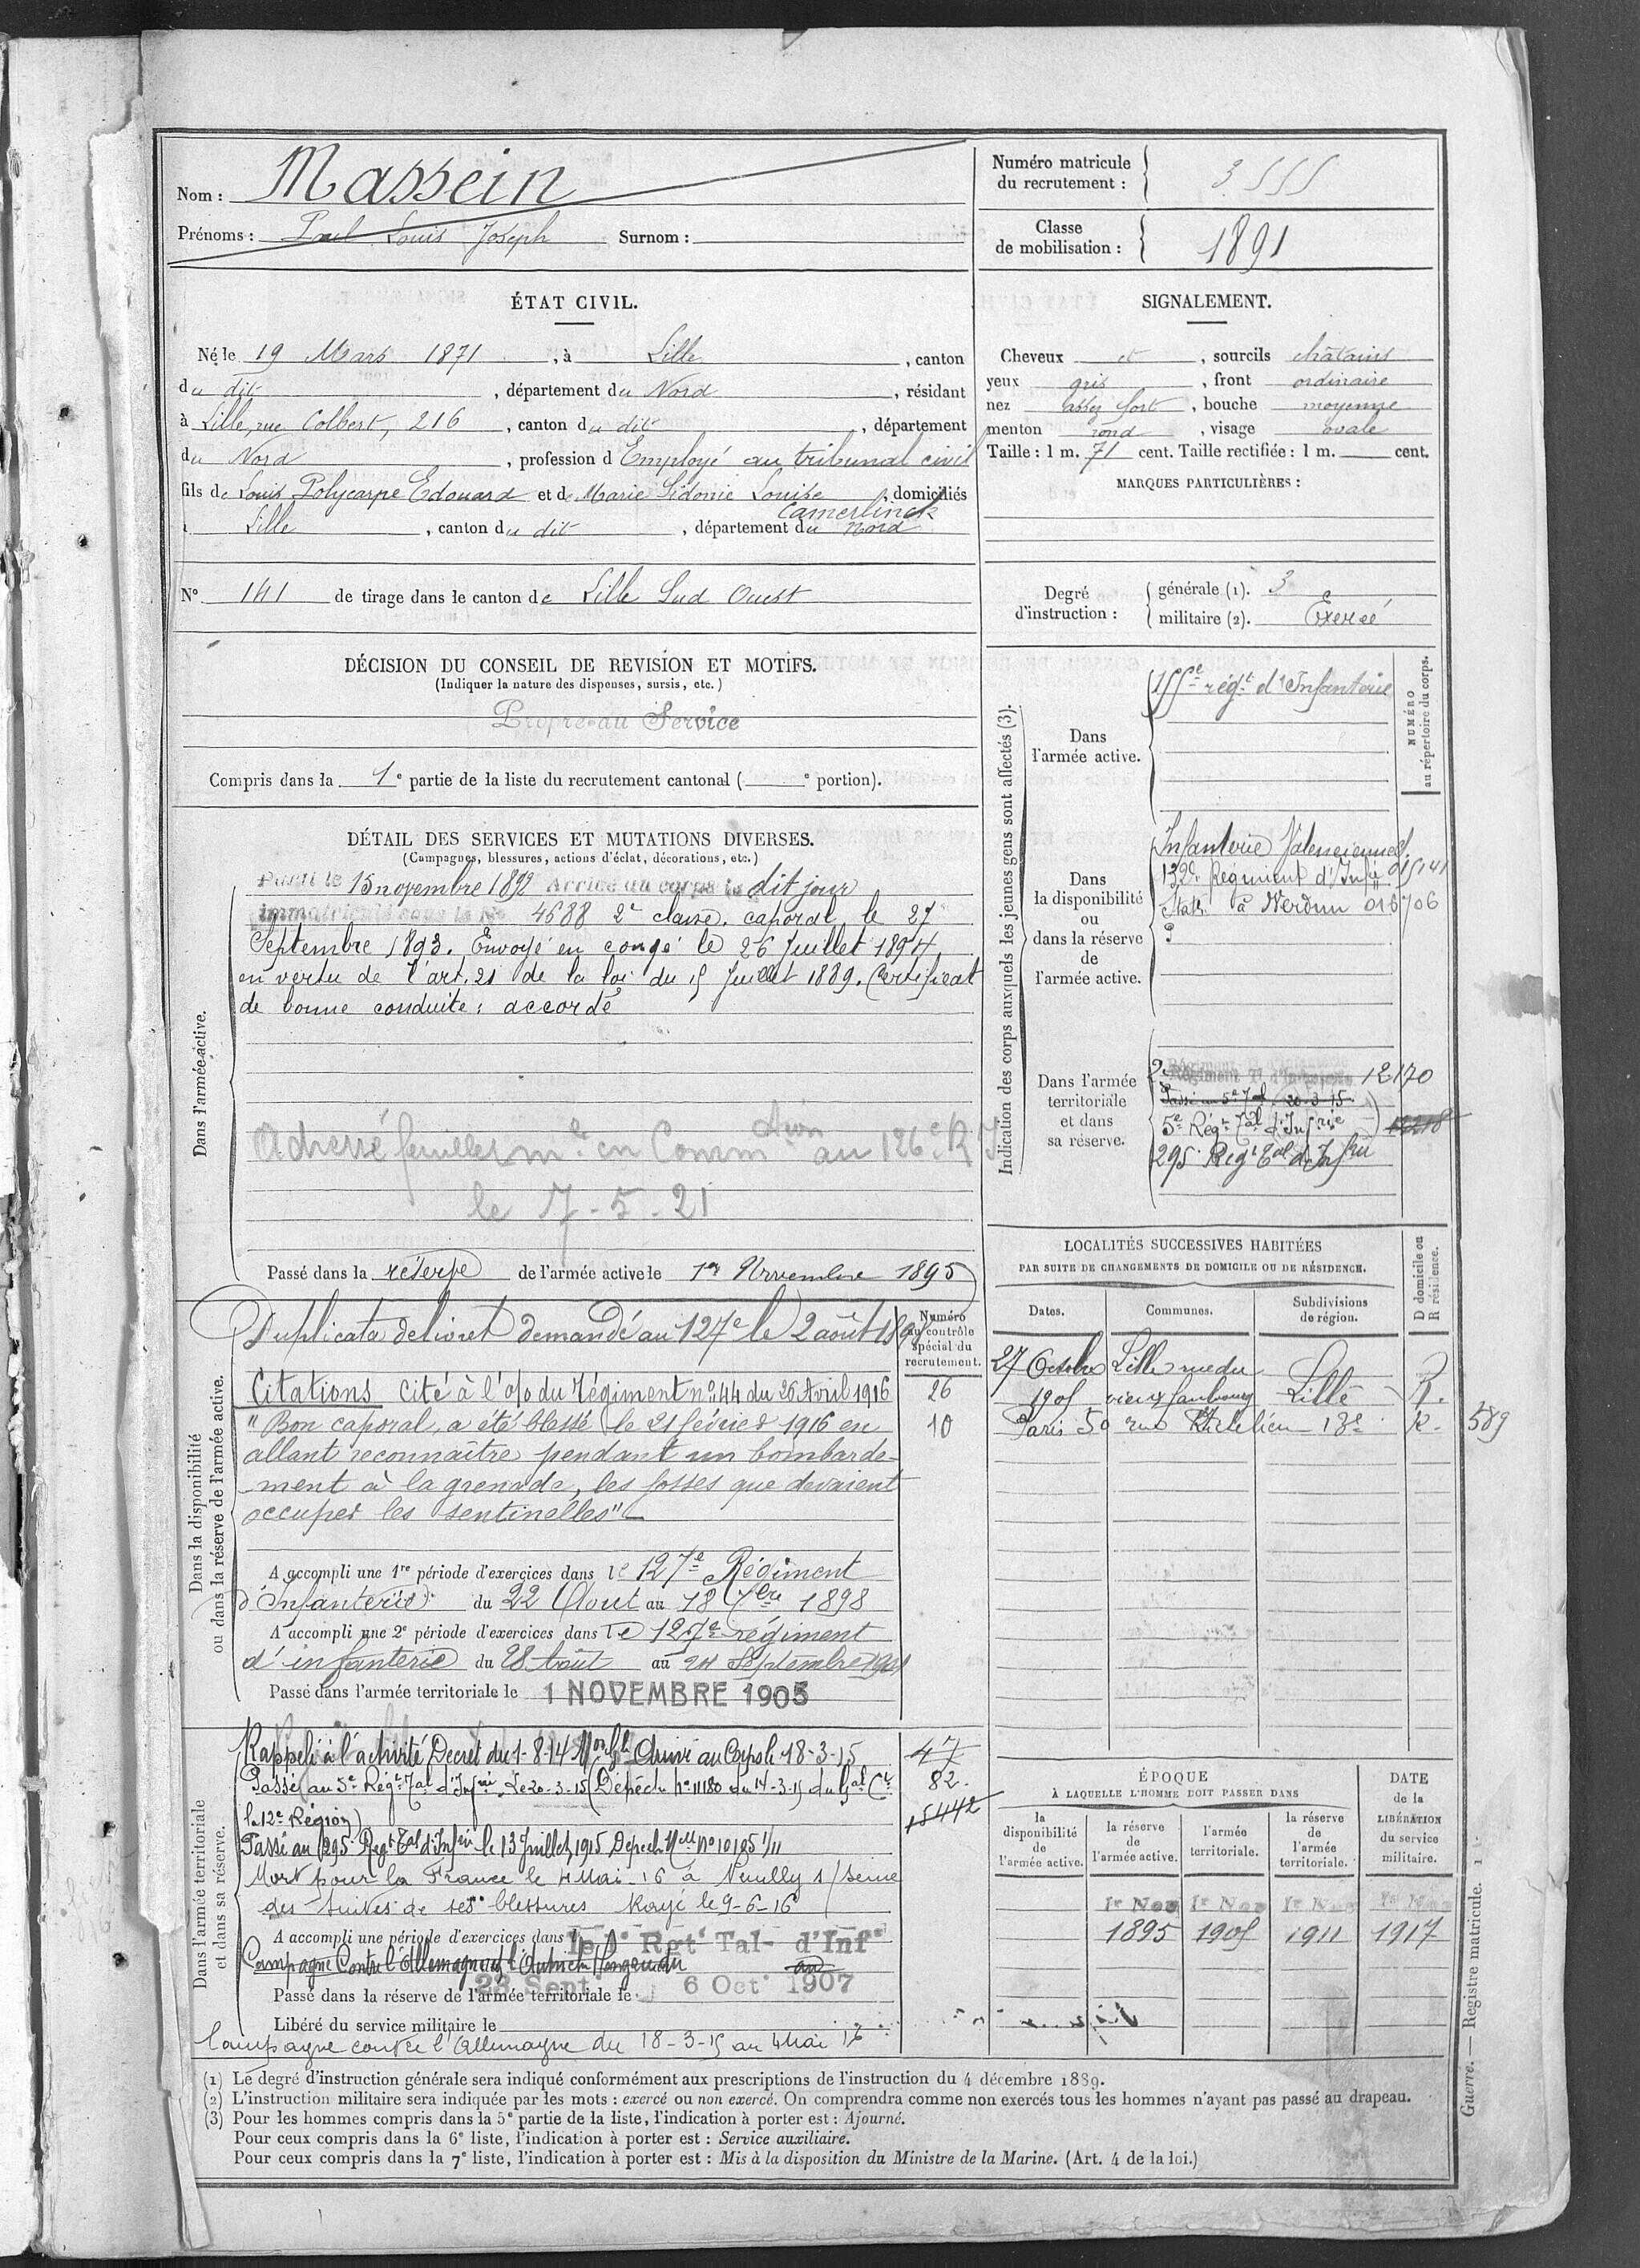 Nom : Massein
Prénoms : Paul Louis Joseph Surnom :
Numéro matricule
du recrutement : 3555
Classe
de mobilisation : 1891
ÉTAT CIVIL.
Né le 19 Mars 1871, à Lille, canton
du dit, département du Nord, résidant
à Lille, rue Colbert, 216, canton du dit, département
du Nord, profession d Employé au tribunal civil
fils de Louis Polycarpe Edouard et de Marie Sidonie Louise, domiciliés
Camerlinck
Lille, canton du dit, département du Nord
N° 141 de tirage dans le canton de Lille Sud Ouest
SIGNALEMENT.
Cheveux et, sourcils châtains
yeux gris, front ordinaire
nez assez fort, bouche moyenne
menton rond, visage ovale
Taille : 1 m. 71 cent. Taille rectifiée : 1 m. cent.
MARQUES PARTICULIÈRES :
Degré
d'instruction :
générale (1). 3
militaire (2). Exercé
DÉCISION DU CONSEIL DE REVISION ET MOTIFS.
(Indiquer la nature des dispenses, sursis, etc.)
Propre au Service
Compris dans la 1e partie de la liste du recrutement cantonal ( e portion).
DÉTAIL DES SERVICES ET MUTATIONS DIVERSES.
(Campagnes, blessures, actions d'éclat, décorations, etc.)
Dans l'armée active.
Parti le 15 novembre 1892 Arrivé au corps le dit jour
immatriculé sous le No 4688 2e classe. caporal le 27
Septembre 1893. Envoyé en congé le 26 Juillet 1894
en vertu de l'art. 21 de la loi du 15 Juillet 1889. Certificat
de bonne conduite : accordé
Adressé feuillet m le en Comm dtion au 126e R I
le 7-5-21
Passé dans la réserve de l'armée active le 1er Novembre 1895
Indication des corps auxquels les jeunes gens sont affectés (3).
NUMÉRO
au répertoire du corps.
Dans
l'armée active.
155e régt d'Infanterie
Dans
la disponibilité
ou
dans la réserve
de
l'armée active.
Infanterie Valenciennes
Régiment d'Infie
à Verdun
Dans l'armée
territoriale
et dans
sa réserve.
Régiment Tl d'Infanterie 12170
Passé au 5e Tal 20-3-15
5e Régt Tal d'Infrie
295 Regt Tal d'Infrie
LOCALITÉS SUCCESSIVES HABITÉES
PAR SUITE DE CHANGEMENTS DE DOMICILE OU DE RÉSIDENCE.
Dates. Communes. Subdivisions
de région.
D domicile ou
R résidence.
27 Octobre Lille rue du
1905 vieux faubourg Lille R.
Paris 50 rue Richelieu 18e R. 589
Dans la disponibilité
ou dans la réserve de l'armée active.
Duplicata de livret demandé au 127e le 2 août 1898
Numéro
au contrôle
spécial du
recrutement.
26
10
Citations Cité à l'o/o du Régiment no 44 du 26 Avril 1916
"Bon caporal, a été blessé le 21 février 1916 en
allant reconnaître pendant un bombarde-
ment à la grenade, les fosses que devaient
occuper les sentinelles"
A accompli une 1re période d'exercices dans le 127e Régiment
d'Infanterie du 22 Aout au 18 7bre 1898
A accompli une 2e période d'exercices dans le 127e régiment
d'infanterie du 28 Août au 24 Septembre 1901
Passé dans l'armée territoriale le 1 NOVEMBRE 1905
Dans l'armée territoriale
et dans sa réserve.
Rappelé à l'activité Decret du 1-8-14 Mon Gle Arrivé au Corps le 18-3-15
47
Passé au 5e Régt Tal d'Infrie Le 20-3-15 (Dépêche no 11180 du 14-3-15 du Gal Ct
82.
la 12e Région)
15442
Passé au 295 Regt Tal d'Infrie le 13 Juillet 1915 Depech Mlle no 10185 1/11
Mort pour la France le 4 Mai-16 à Neuilly s/Seine
des suites de ses blessures Rayé le 9-6-16
A accompli une période d'exercices dans le Rgt Tal- d'Inf
Campagne Contre l'Allemagne et l'Autriche Hongrie du au
23 Sept 6 Oct 1907
Passé dans la réserve de l'armée territoriale le
Libéré du service militaire le
Campagne contre l'Allemagne du 18-3-15 au 4 Mai 16
ÉPOQUE
À LAQUELLE L'HOMME DOIT PASSER DANS
la
disponibilité
de
l'armée active.
la réserve
de
l'armée active.
l'armée
territoriale.
la réserve
de
l'armée
territoriale.
DATE
de la
LIBÉRATION
du service
militaire.
1r Nov 1r Nov 1r Nov 1r Nov
1895 1905 1911 1917
(1) Le degré d'instruction générale sera indiqué conformément aux prescriptions de l'instruction du 4 décembre 1889.
(2) L'instruction militaire sera indiquée par les mots : exercé ou non exercé. On comprendra comme non exercés tous les hommes n'ayant pas passé au drapeau.
(3) Pour les hommes compris dans la 5e partie de la liste, l'indication à porter est : Ajourné.
Pour ceux compris dans la 6e liste, l'indication à porter est : Service auxiliaire.
Pour ceux compris dans la 7e liste, l'indication à porter est : Mis à la disposition du Ministre de la Marine. (Art. 4 de la loi.)
Guerre. — Registre matricule. 1